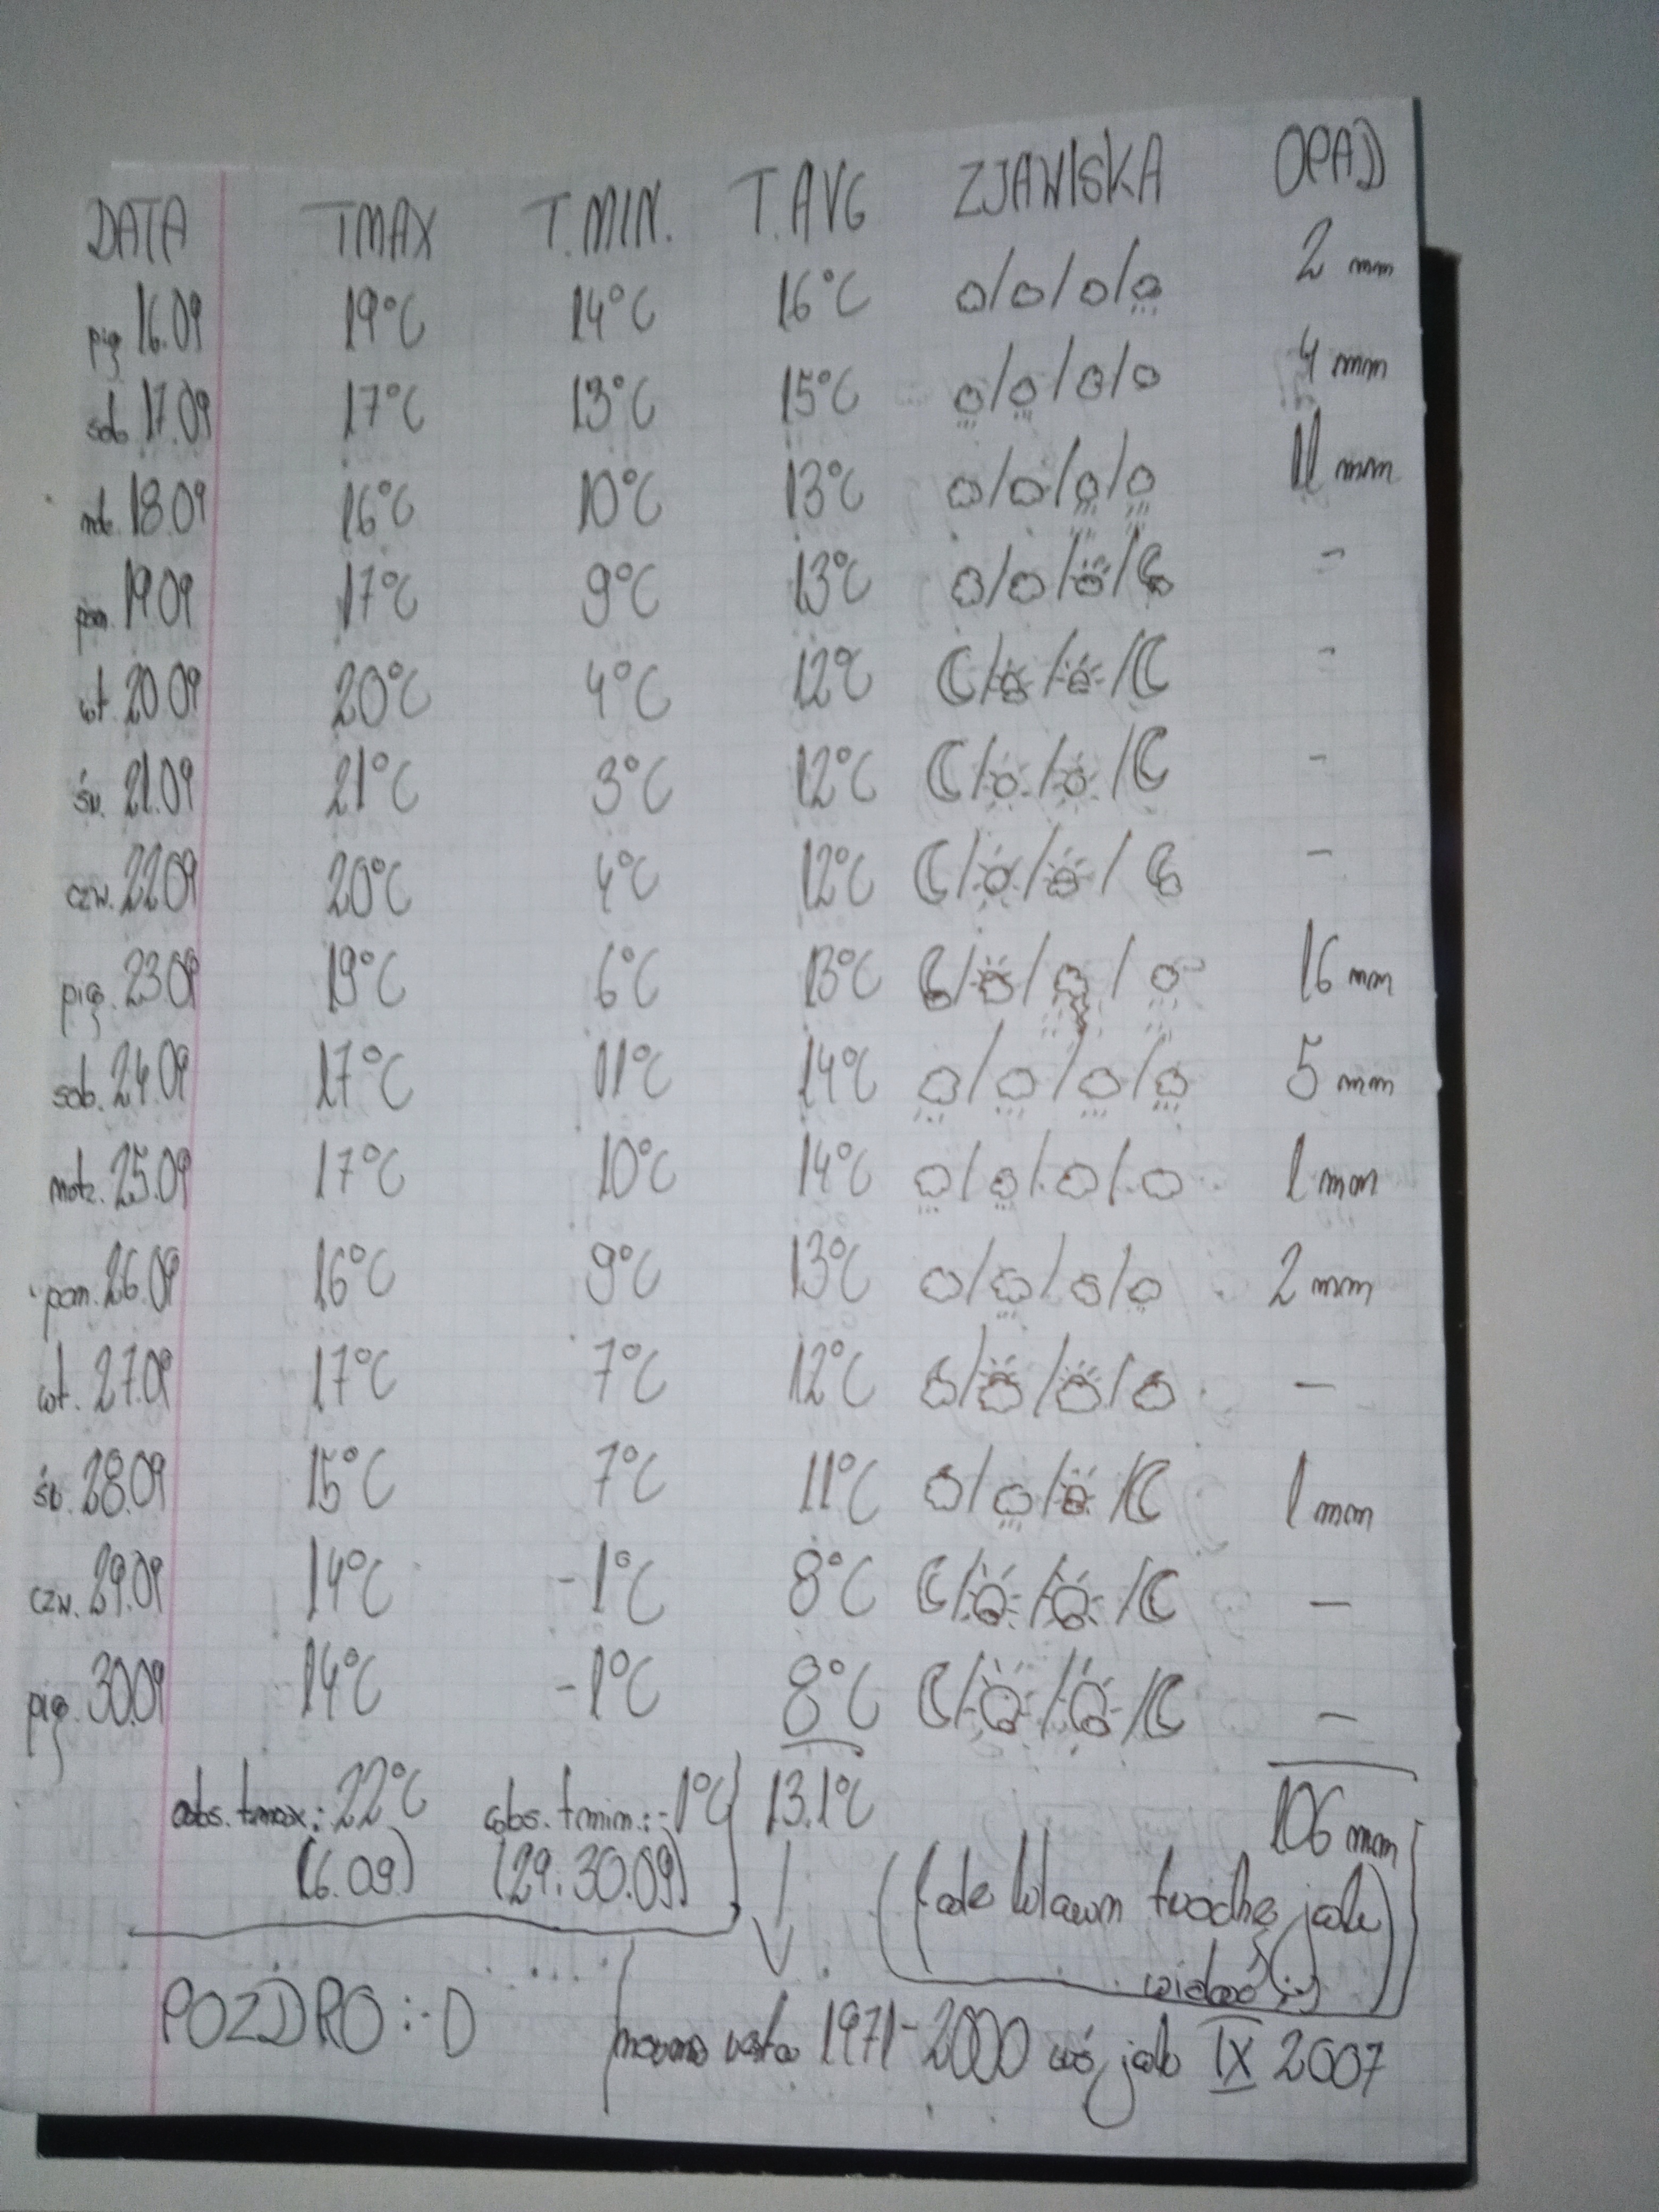 DATA TMAX T.MIN. T.AVG ZJAWISKA OPAD
pią 16.09 19°C 14°C 16°C 2 mm
sob. 17.09 17°C 13°C 15°C 4 mm
ndz. 18.09 16°C 10°C 13°C 11 mm
pon. 19.09 17°C 9°C 13°C -
wt. 20.09 20°C 4°C 12°C -
śr. 21.09 21°C 3°C 12°C -
czw. 22.09 20°C 4°C 12°C -
pią. 23.09 19°C 6°C 13°C 16 mm
sob. 24.09 17°C 11°C 14°C 5 mm
25.09 17°C 10°C 14°C 1 mm
pon. 26.09 16°C 9°C 13°C 2 mm
wt. 27.09 17°C 7°C 12°C -
śr. 28.09 15°C 7°C 11°C 1 mm
czw. 29.09 14°C -1°C 8°C -
pią. 30.09 14°C -1°C 8°C -
abs. tmax.: 22°C abs. tmin.: -1°C 13.1°C 106 mm
(6.09) (29.30.09)
jak
widać ;-)
POZDRO :-D 1971-2000 jak IX 2007